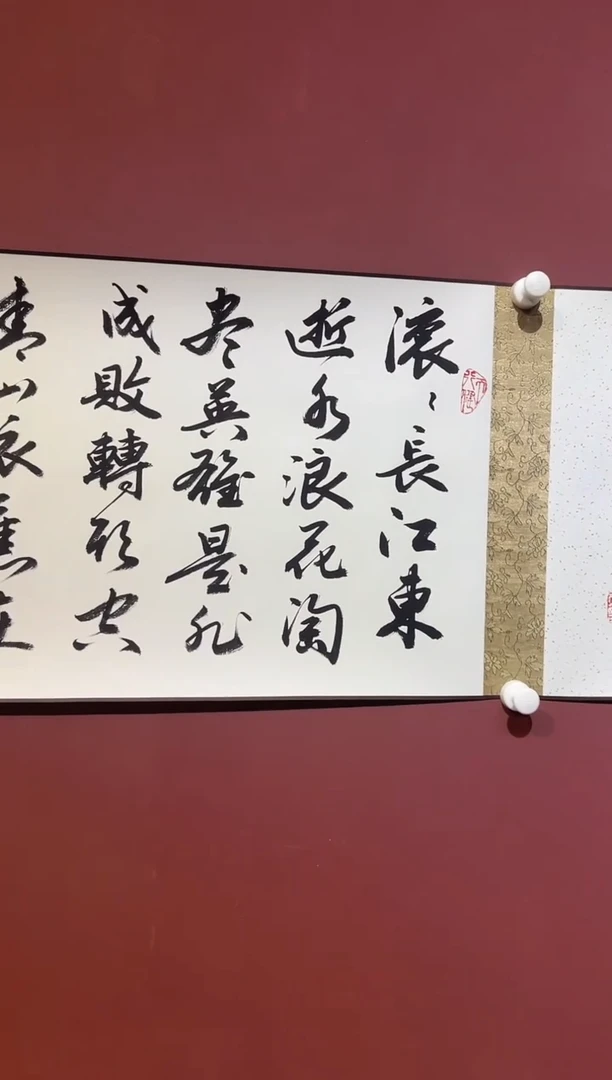 滚〻長江東
逝水浪花淘
尽英雄是非
成敗轉头空
青山依舊在